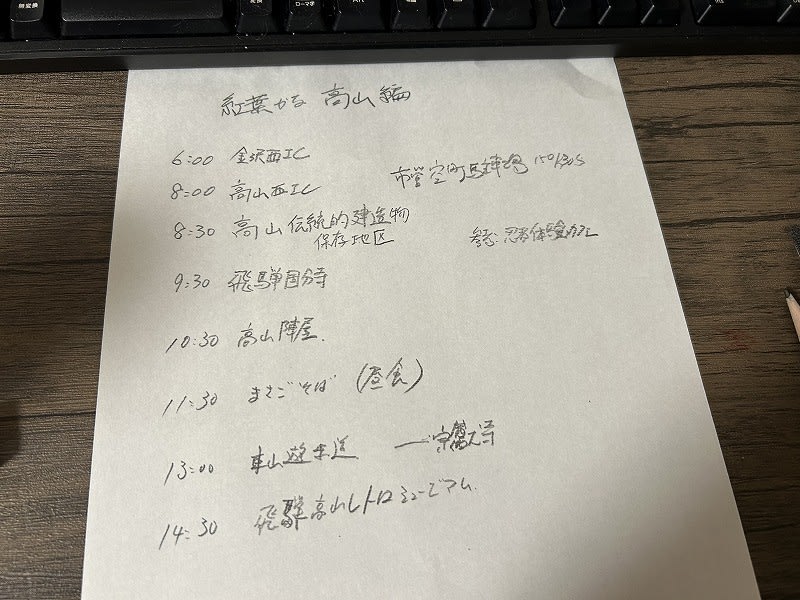 無変換
変換
紅葉かな 高山編
6:00 金沢西IC
8:00 高山西IC 市営空町駐車場
8:30 高山 伝統的建造物
保存地区 参考:忍者体験カフェ
9:30 飛騨国分寺
10:30 高山陣屋.
11:30 まさごそば (昼食)
13:00 東山遊歩道
14:30 飛騨高山レトロミュージアム.